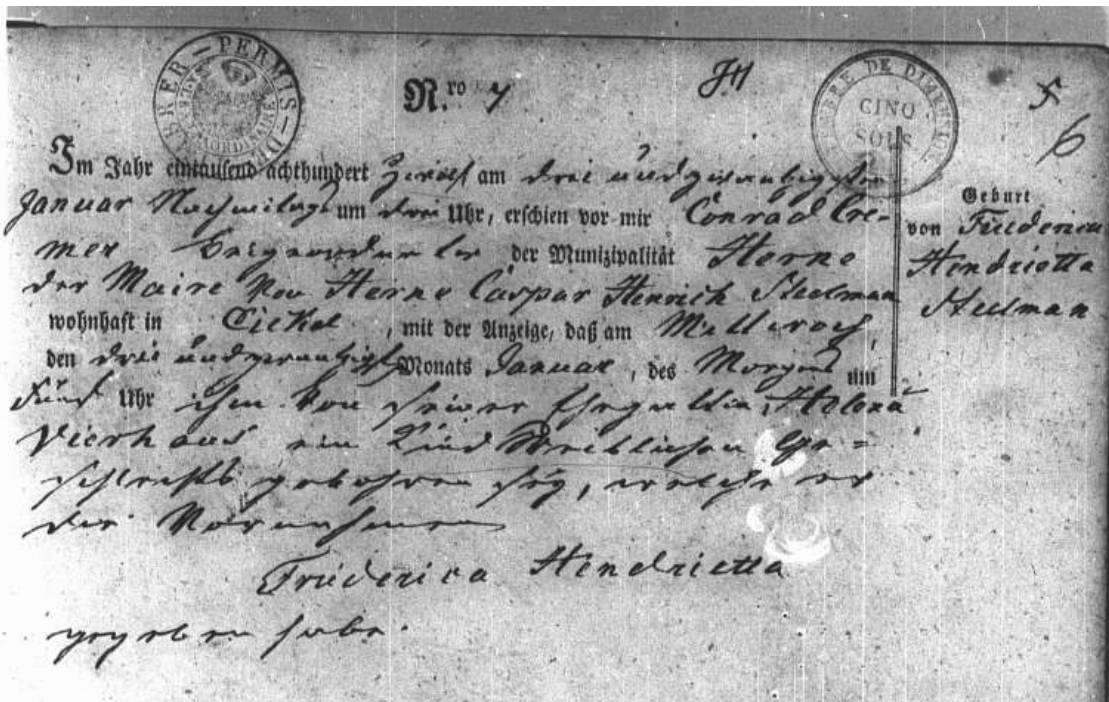 PERMIS
N.ro 7
TIMBRE DE DIMENSION
CINQ
SOUS
6
Im Jahr eintausend achthundert Zwölf am drei und zwantzigsten
Januar Nachmitags um drei Uhr, erschien vor mir Conrad Cre-
mer der Munizipalität Herne
der Maire von Herne Caspar Henrich Steelman
wohnhaft in Eickel, mit der Anzeige, daß am Mittwoch,
den drei und zwantzigst Monats Januar, des Morgens um
Fünf Uhr ihm von seiner Ehegattin Helena
Vierhaus ein Kind Weiblichen Ge=
schlechts gebohren sey, welche er
die Vornahmen
Friederica Hendrietta
gegeben habe.
Geburt
von Friederica
Hendrietta
Steelman